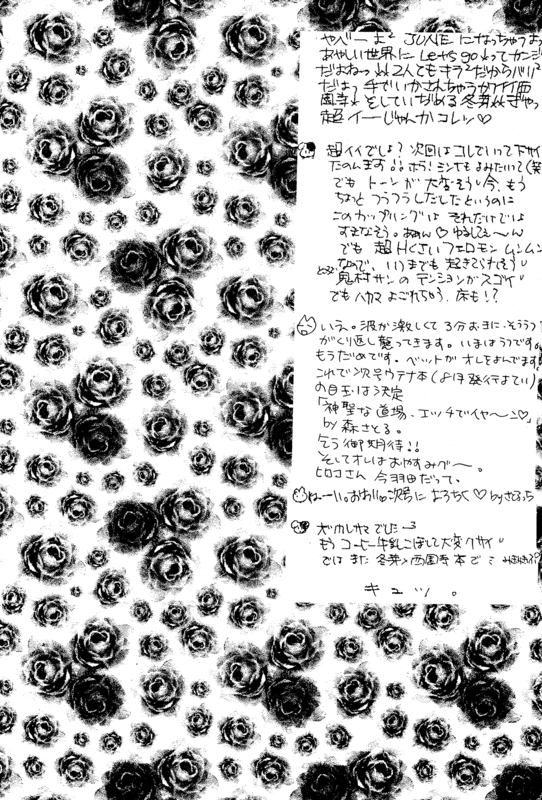 やべーよ² JUNEになっちゃうよっ
あやしい世界にLet's go!!ってカンジ
だよねっ!!2人でもキラ²だからバリ²
だよっ チでいかさんちゃうか
そしていぢめる冬芽
超イーじゃんかコレッ♡
超イイでしょ?次回はコレでいって下サイ
たのんます!!ホラ!ミンナもよみたいって(笑
でも トーン が 大変そう 今、もう
ちょっと フラフラしだしたというのに
このカップリングは それだけでは
すまなそう。あぁん♡ゆるしてぇ〜ん
でも 超Hくさいフェロモン ムンムン
なので、いつまでも起きてられそう
鬼村サンの テンションがスゴイ
でもハカマよごれちゃう、床も!?
いえ。波が激しくて 3分おきに、そううつ
がくり返し襲ってきます。いまはうつです。
もうだめです。ベットが オレをよんでます
これで次号ウテナ本(8月発行予てい)
の目玉は決定
「神聖な道場、エッチでイヤ〜ン♡」
by 森さとる。
乞う御期待!!
そしてオレはおやすみグ〜。
ヒロコさん 今羽田だって、
ねーい。おわり。次号に よろちく♡by さとっち
オツカレサマでした
もう コーヒー牛乳こぼして大変クサイ
では また 冬芽×西園寺本で
キュッ 。